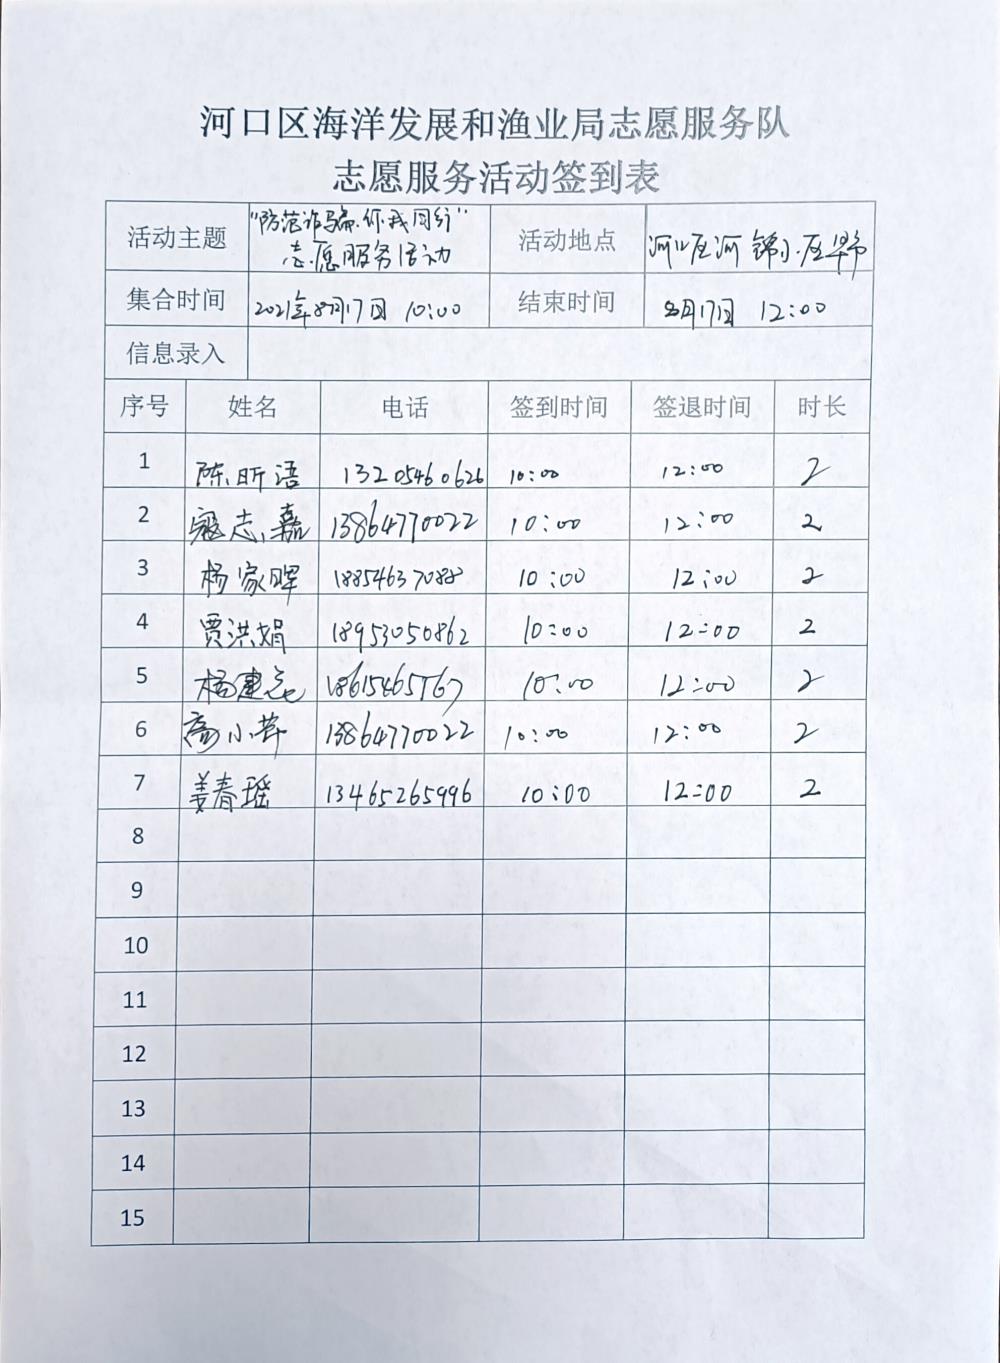 河口区海洋发展和渔业局志愿服务队
志愿服务活动签到表
活动主题 "防范诈骗.你我同行" 志愿服务活动 活动地点 河口区河锦小区
集合时间 2021年8月17日 10:00 结束时间 8月17日 12:00
信息录入
序号 姓名 电话 签到时间 签退时间 时长
1 陈昕语 13205460626 10:00 12:00 2
2 寇志嘉 13864770022 10:00 12:00 2
3 杨家晖 18854637088 10:00 12:00 2
4 贾洪娟 18953050862 10:00 12:00 2
5 杨建 18615465767 10:00 12:00 2
6 高小 13864770022 10:00 12:00 2
7 姜春瑶 13465265996 10:00 12:00 2
8
9
10
11
12
13
14
15